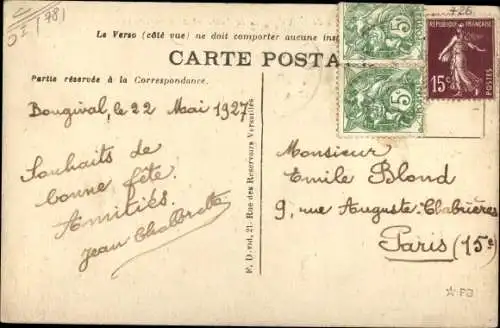 (78)
726
Le Verso (côté vue) ne doit comporter aucune
CARTE POSTA
Partie réservée à la Correspondance.
RÉPUBLIQUE FRANÇAISE
5
5
15c
POSTES
Bougival, le 22 Mai 1927
Souhaits de
bonne fête
Amitiés.
Jean
F. D. 21, Rue des Réservoirs Versailles
Monsieur
Emile Blond
9, rue Auguste-Chabrières
Paris (15e)